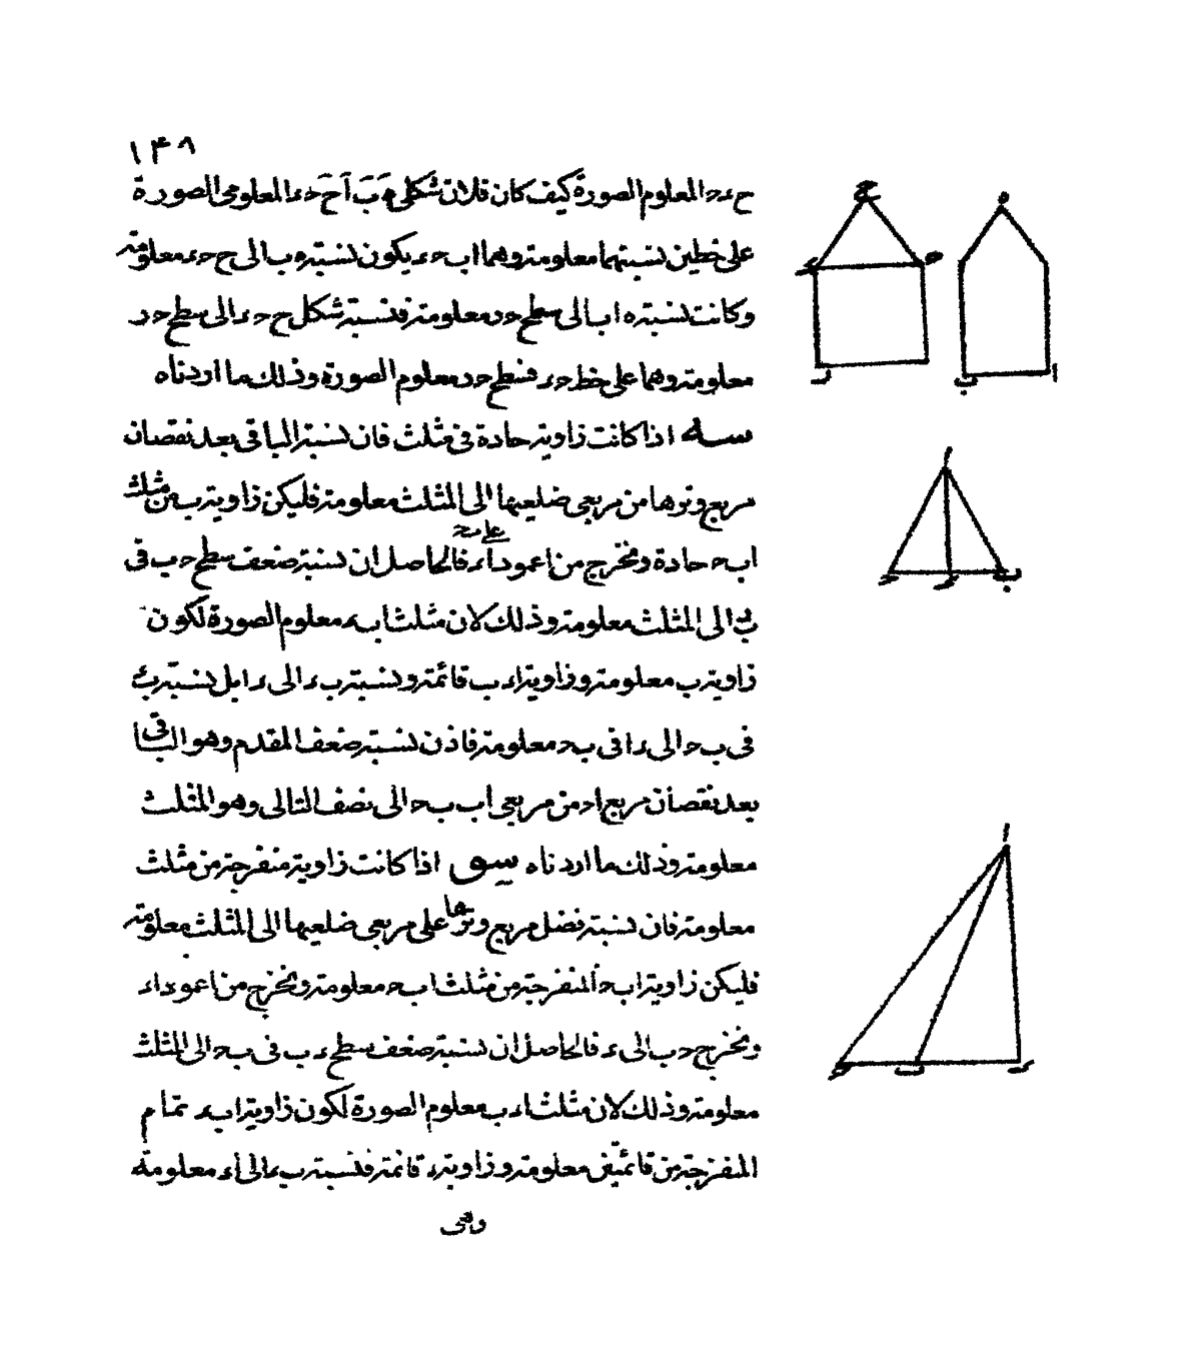 ١٤٨
ح ء ه المعلوم الصورة كيف كان فلان شكلى ه ب ا ح ح ه ء المعلومى الصورة
على خطين نسبتهما معلومة وهما ا ب ه ء يكون نسبة ه ب ا الى ح ه ء معلومة
وكانت نسبة ه ا ب الى سطح ه ر معلومة فنسبة شكل ح ه ء الى سطح ه ر
معلومة وهما على خط ه ء فسطح ه ر معلوم الصورة وذلك ما اردناه
سه اذا كانت زاوية حادة فى مثلث فان نسبة الباقى بعد نقصان
مربع وترها من مربعى ضلعيها الى المثلث معلومة فليكن زاوية ب من مثلث
ا ب ه حادة ونخرج من ا عمود ا ء على ب ه فالحاصل ان نسبة ضعف سطح ه ب فى
ب ء الى المثلث معلومة وذلك لان مثلث ا ب ء معلوم الصورة لكون
زاوية ب معلومة وزاوية ا ء ب قائمة ونسبة ب ء الى ء ا بل نسبة ب ء
فى ب ه الى ء ا فى ب ه معلومة فاذن نسبة ضعف المقدم وهو الباقى
بعد نقصان مربع ا ه من مربعى ا ب ب ه الى نصف التالى وهو المثلث
معلومة وذلك ما اردناه سو اذا كانت زاوية منفرجة من مثلث
معلومة فان نسبة فضل مربع وترها على مربعى ضلعيها الى المثلث معلومة
فليكن زاوية ا ب ه المنفرجة من مثلث ا ب ه معلومة ونخرج من ا عمود ا ء
ونخرج ه ب الى ء فالحاصل ان نسبة ضعف سطح ء ب فى ب ه الى المثلث
معلومة وذلك لان مثلث ا ء ب معلوم الصورة لكون زاوية ا ب ء تمام
المنفرجة من قائمتين معلومة وزاوية ء قائمة فنسبة ب ء الى ا ء معلومة
وهى
ح
ه
ء
ه
ر
ب
ا
ا
ه
ء
ب
ا
ه
ب
ء